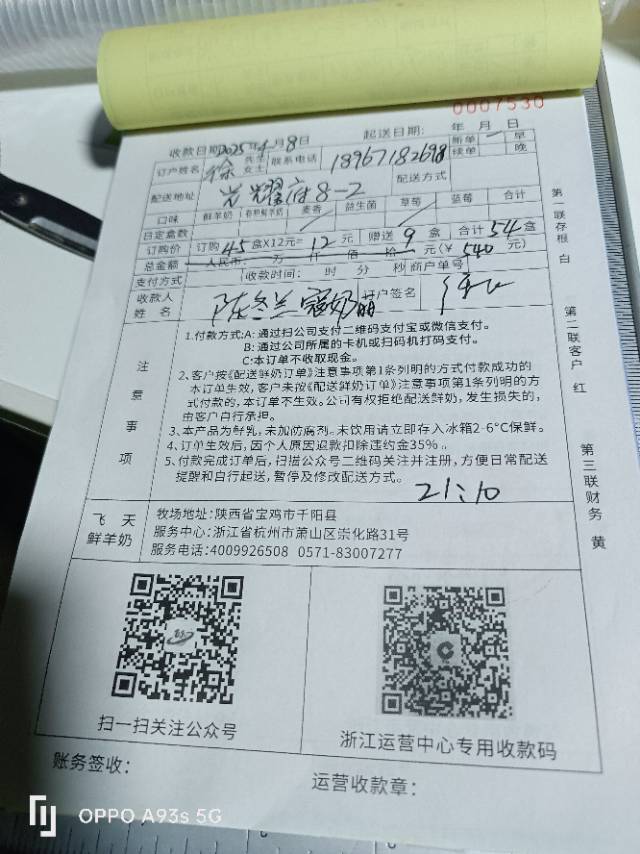 0007530
收款日期2025年4月8日 起送日期: 年 月 日
订户姓名 徐 先生 女士 联系电话 18967182698 新单 续单 早 晚
配送地址 光耀府8-2 配送方式
口味 鲜羊奶 有机鲜羊奶 麦香 益生菌 草莓 蓝莓 合计
日定盒数
订购价 订购45盒X12元=12元 赠送9盒 合计54盒
总金额 人民币: 万 仟 佰 拾 元(¥ 540 元)
支付方式 收款时间: 时 分 秒 商户单号
收款人姓名 陈冬兰 订户签名
注意事项
1.付款方式:A: 通过扫公司支付二维码支付宝或微信支付。
B: 通过公司所属的卡机或扫码机打码支付。
C:本订单不收取现金。
2、客户按《配送鲜奶订单》注意事项第1条列明的方式付款成功的
本订单生效,客户未按《配送鲜奶订单》注意事项第1条列明的方
式付款的,本订单不生效。公司有权拒绝配送鲜奶,发生损失的,
由客户自行承担。
3、本产品为鲜乳,未加防腐剂。未饮用请立即存入冰箱2-6°C保鲜。
4、订单生效后,因个人原因退款扣除违约金35%。
5、付款完成订单后,扫描公众号二维码关注并注册,方便日常配送
提醒和自行起送,暂停及修改配送方式。
21:10
飞天
鲜羊奶
牧场地址:陕西省宝鸡市千阳县
服务中心:浙江省杭州市萧山区崇化路31号
服务电话:4009926508 0571-83007277
扫一扫关注公众号
浙江运营中心专用收款码
账务签收:
运营收款章:
第一联存根 白
第二联客户 红
第三联财务 黄
OPPO A93s 5G